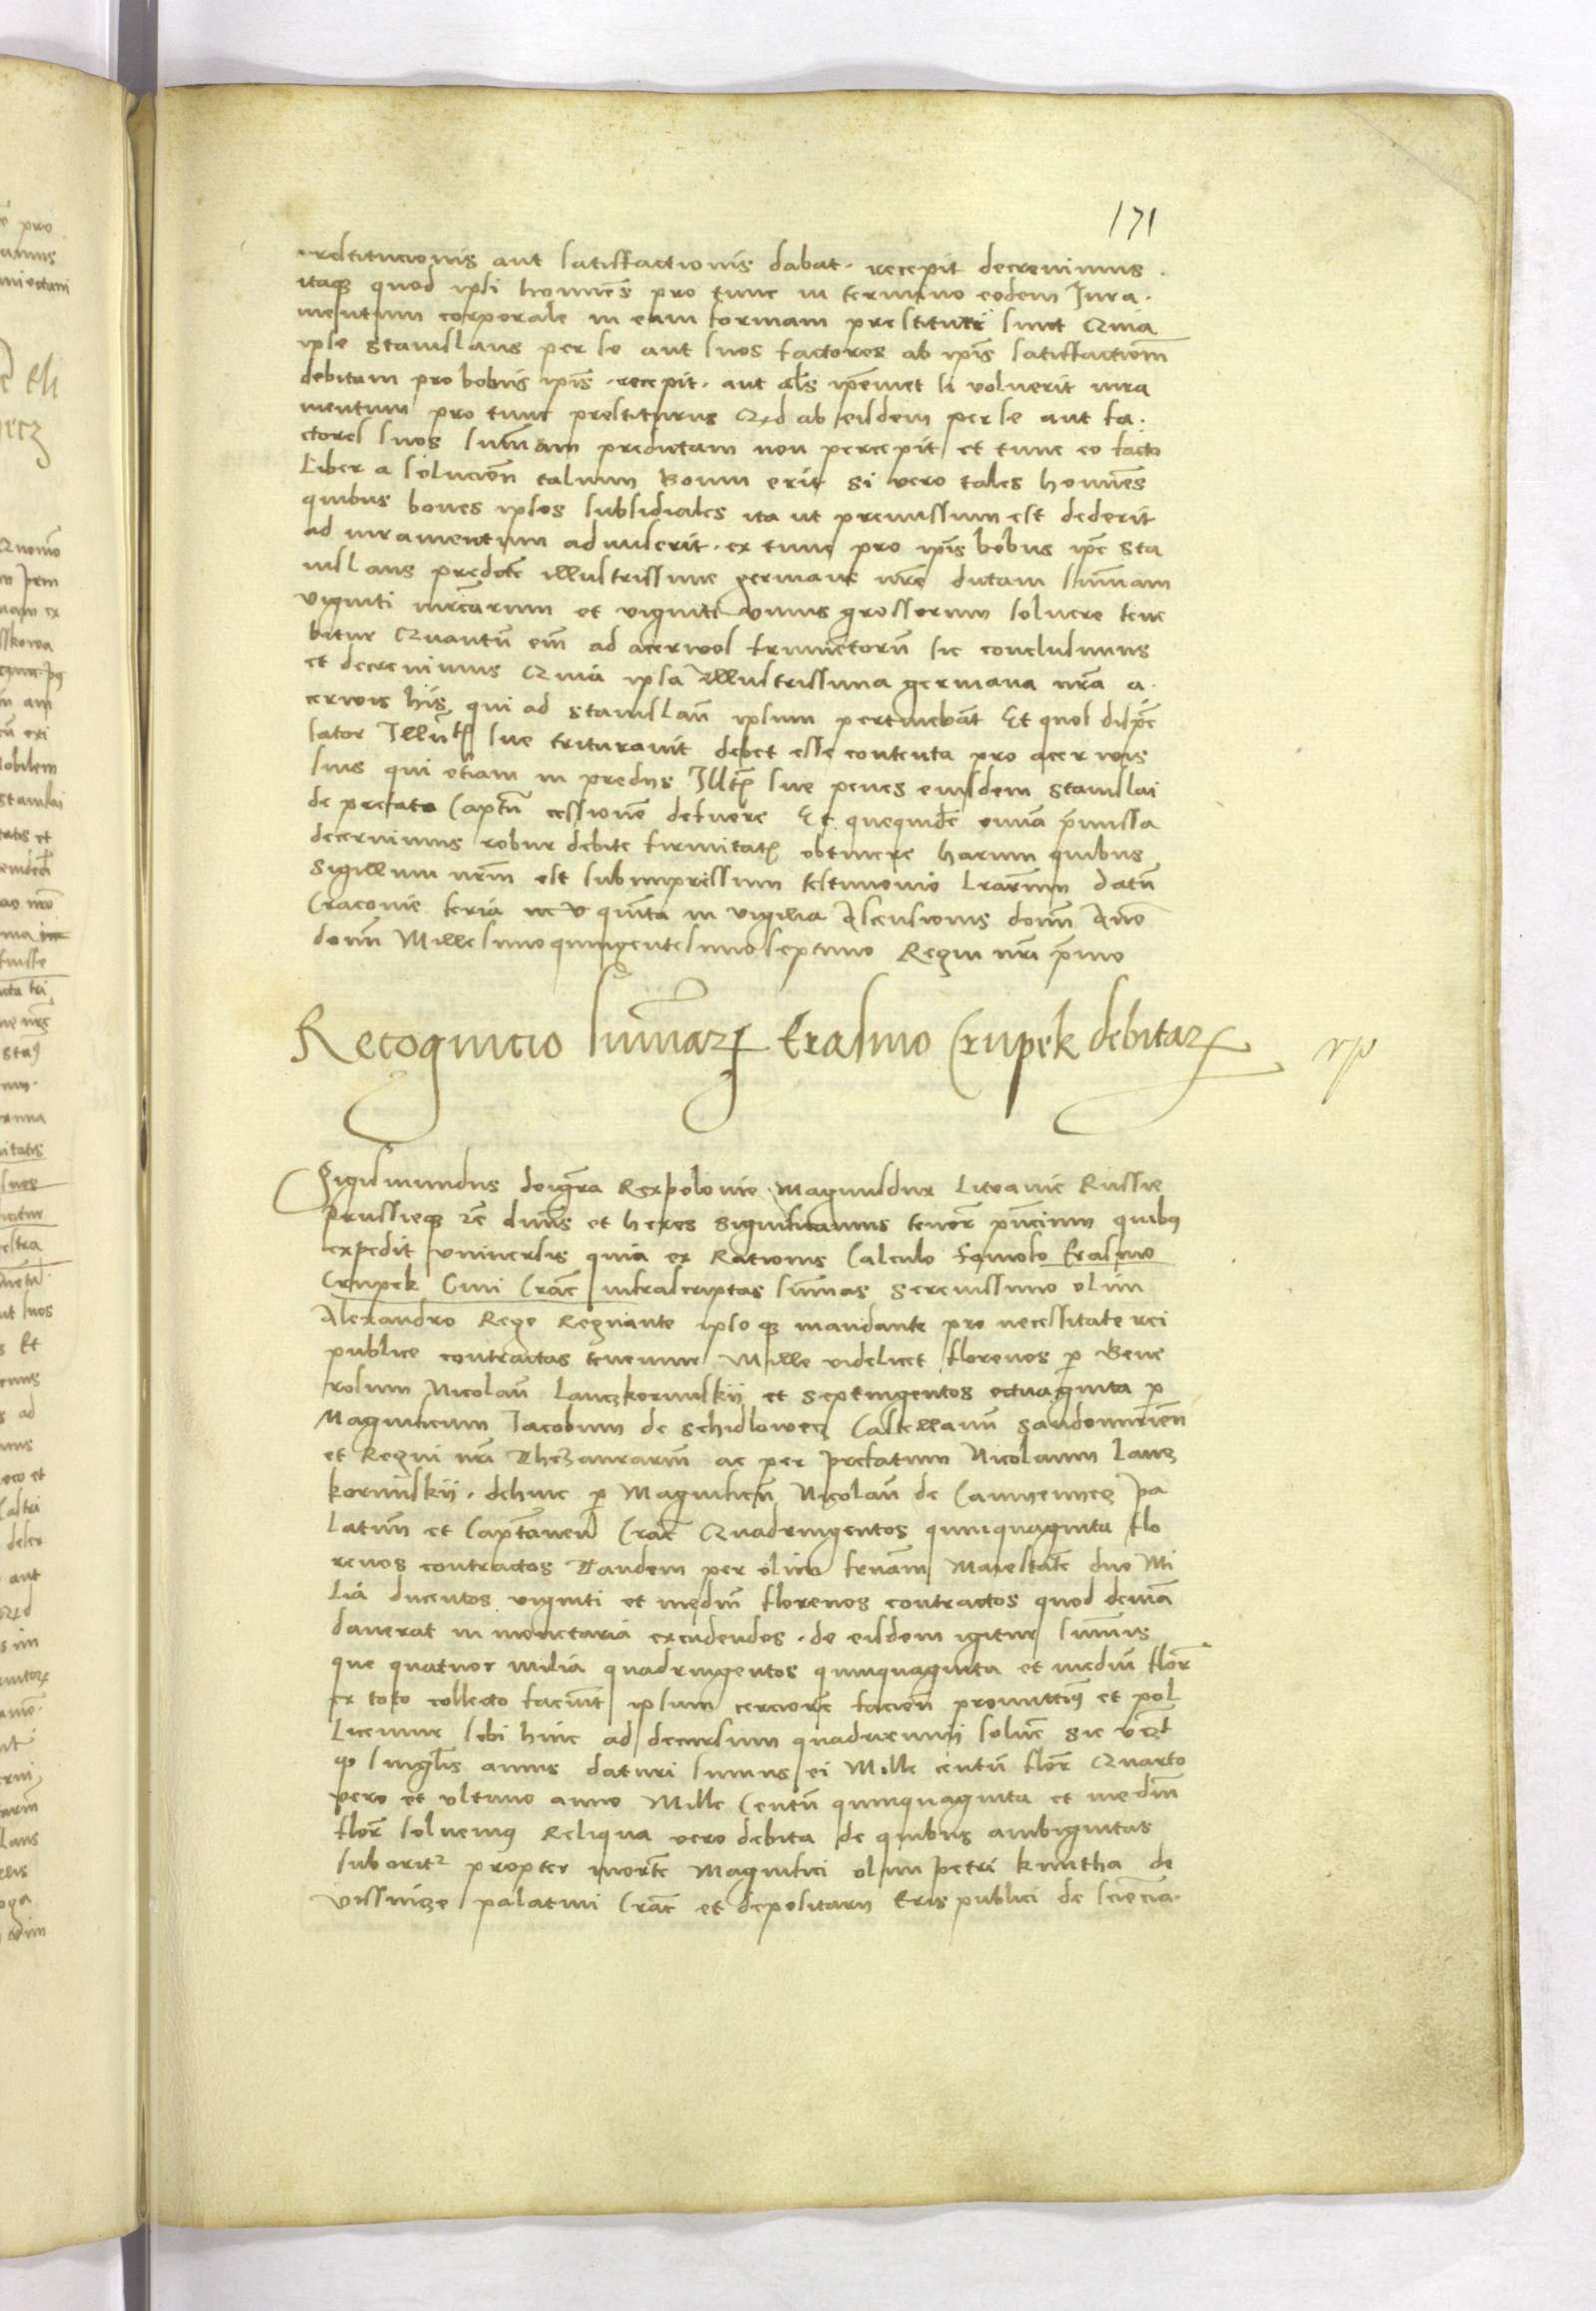 171
restitucionis aut satisfactionis dabat. recepit decrevimus.
itaq3 quod ipsi homines pro tunc in termino eodem Jura.
mentum corporale in eam formam prestituri sunt Quia
ipse Stanislaus per se aut suos factores ab ipis satisfactiom
debitam pro bobus ipis. recepit. aut als ipemet si voluerit iura
mentum pro tunc prestiturus Qd ab eisdem per se aut fa.
ctores suos summam predictam non percepit et tunc eo facto
Liber a solucion talium Boum erit si vero tales homines
quibus boves ipsos subsidiales ita ut premissum est dederit
ad iuramentum admiserit. ex tunc pro ipis bobus ipe Sta
nislaus predcte illustrissime germane nre dictam summam
viginti mrcarum et viginti unius grossorum solvere tene
bitur Quantu em ad acervos frumetoru sic conclusimus
et decrevimus Quia ipsa Illustrissima germana nra a.
cervis his qui ad Stanislau ipsum pertinebat Et quos dispe
sator Illu sue trituravit debet esse contenta pro acervis
suis qui etiam in prediis Illt sue penes eiusdem Stanislai
de prefata Captu cessione defuere Et quequide omnia pmissa
decernimus robur debite firmitat obtinere harum quibus
Sigillum nrm est subimpressum testimonio Lrarum datu
Cracovie feria quita in vigilia Ascensionis domi Ano
domi Millesimoquingentesimoseptimo Regni nri pmo
Recognicio sumar Erasmo Crupek debitar
Sigismundus deigra Rex polonie Magnusdux Litvanie Russie
Prussieq3 zc dnus et heres Significamus tenor pncium quib9
expedit universis quia ex Rationis Calculo Famoso Erasmo
Crupek Civi Crac infrascriptas sumas Serenissimo olim
Alexandro Rege Regnante ipso q3 mandante pro necessitate rei
publice contractas tenemur Mille videlicet florenos p Gene
rosum Nicolau Lanczkorunskij et septingentos octuaginta p
Magnificum Jacobum de Schidlowecz Castellanu Sandomirien
et Regni nri Thezaurariu ac per prefatum Nicolaum Lancz
korunskij. dehinc p Magnificu Nicolau de Camyenyecz Pa
latinu et Captaneu Crac Quadringentos quinquaginta flo
renos contractos Tandem per olim Maiestate duo Mi
lia ducentos viginti et mediu florenos contractos quod
danerat in monetaria excudendos. de eisdem igitur sumis
que quatuor milia quadringentos quinquaginta et mediu flor
ex toto collecto faciunt ipsum cerciore facien promittim9 et pol
Licemur sibi hinc ad decursum quadriennij solve sic
q singlis annis daturi sumus ei Mille centu flor Quarto
vero et ultimo anno Mille Centu quinquaginta et mediu
flor solvem9 Reliqua vero debita de quibus ambiguitas
suborit propter morte Magnifici olim petri kmitha de
Vissnicze palatini Crac et depositarii Eris publici de sciencia.